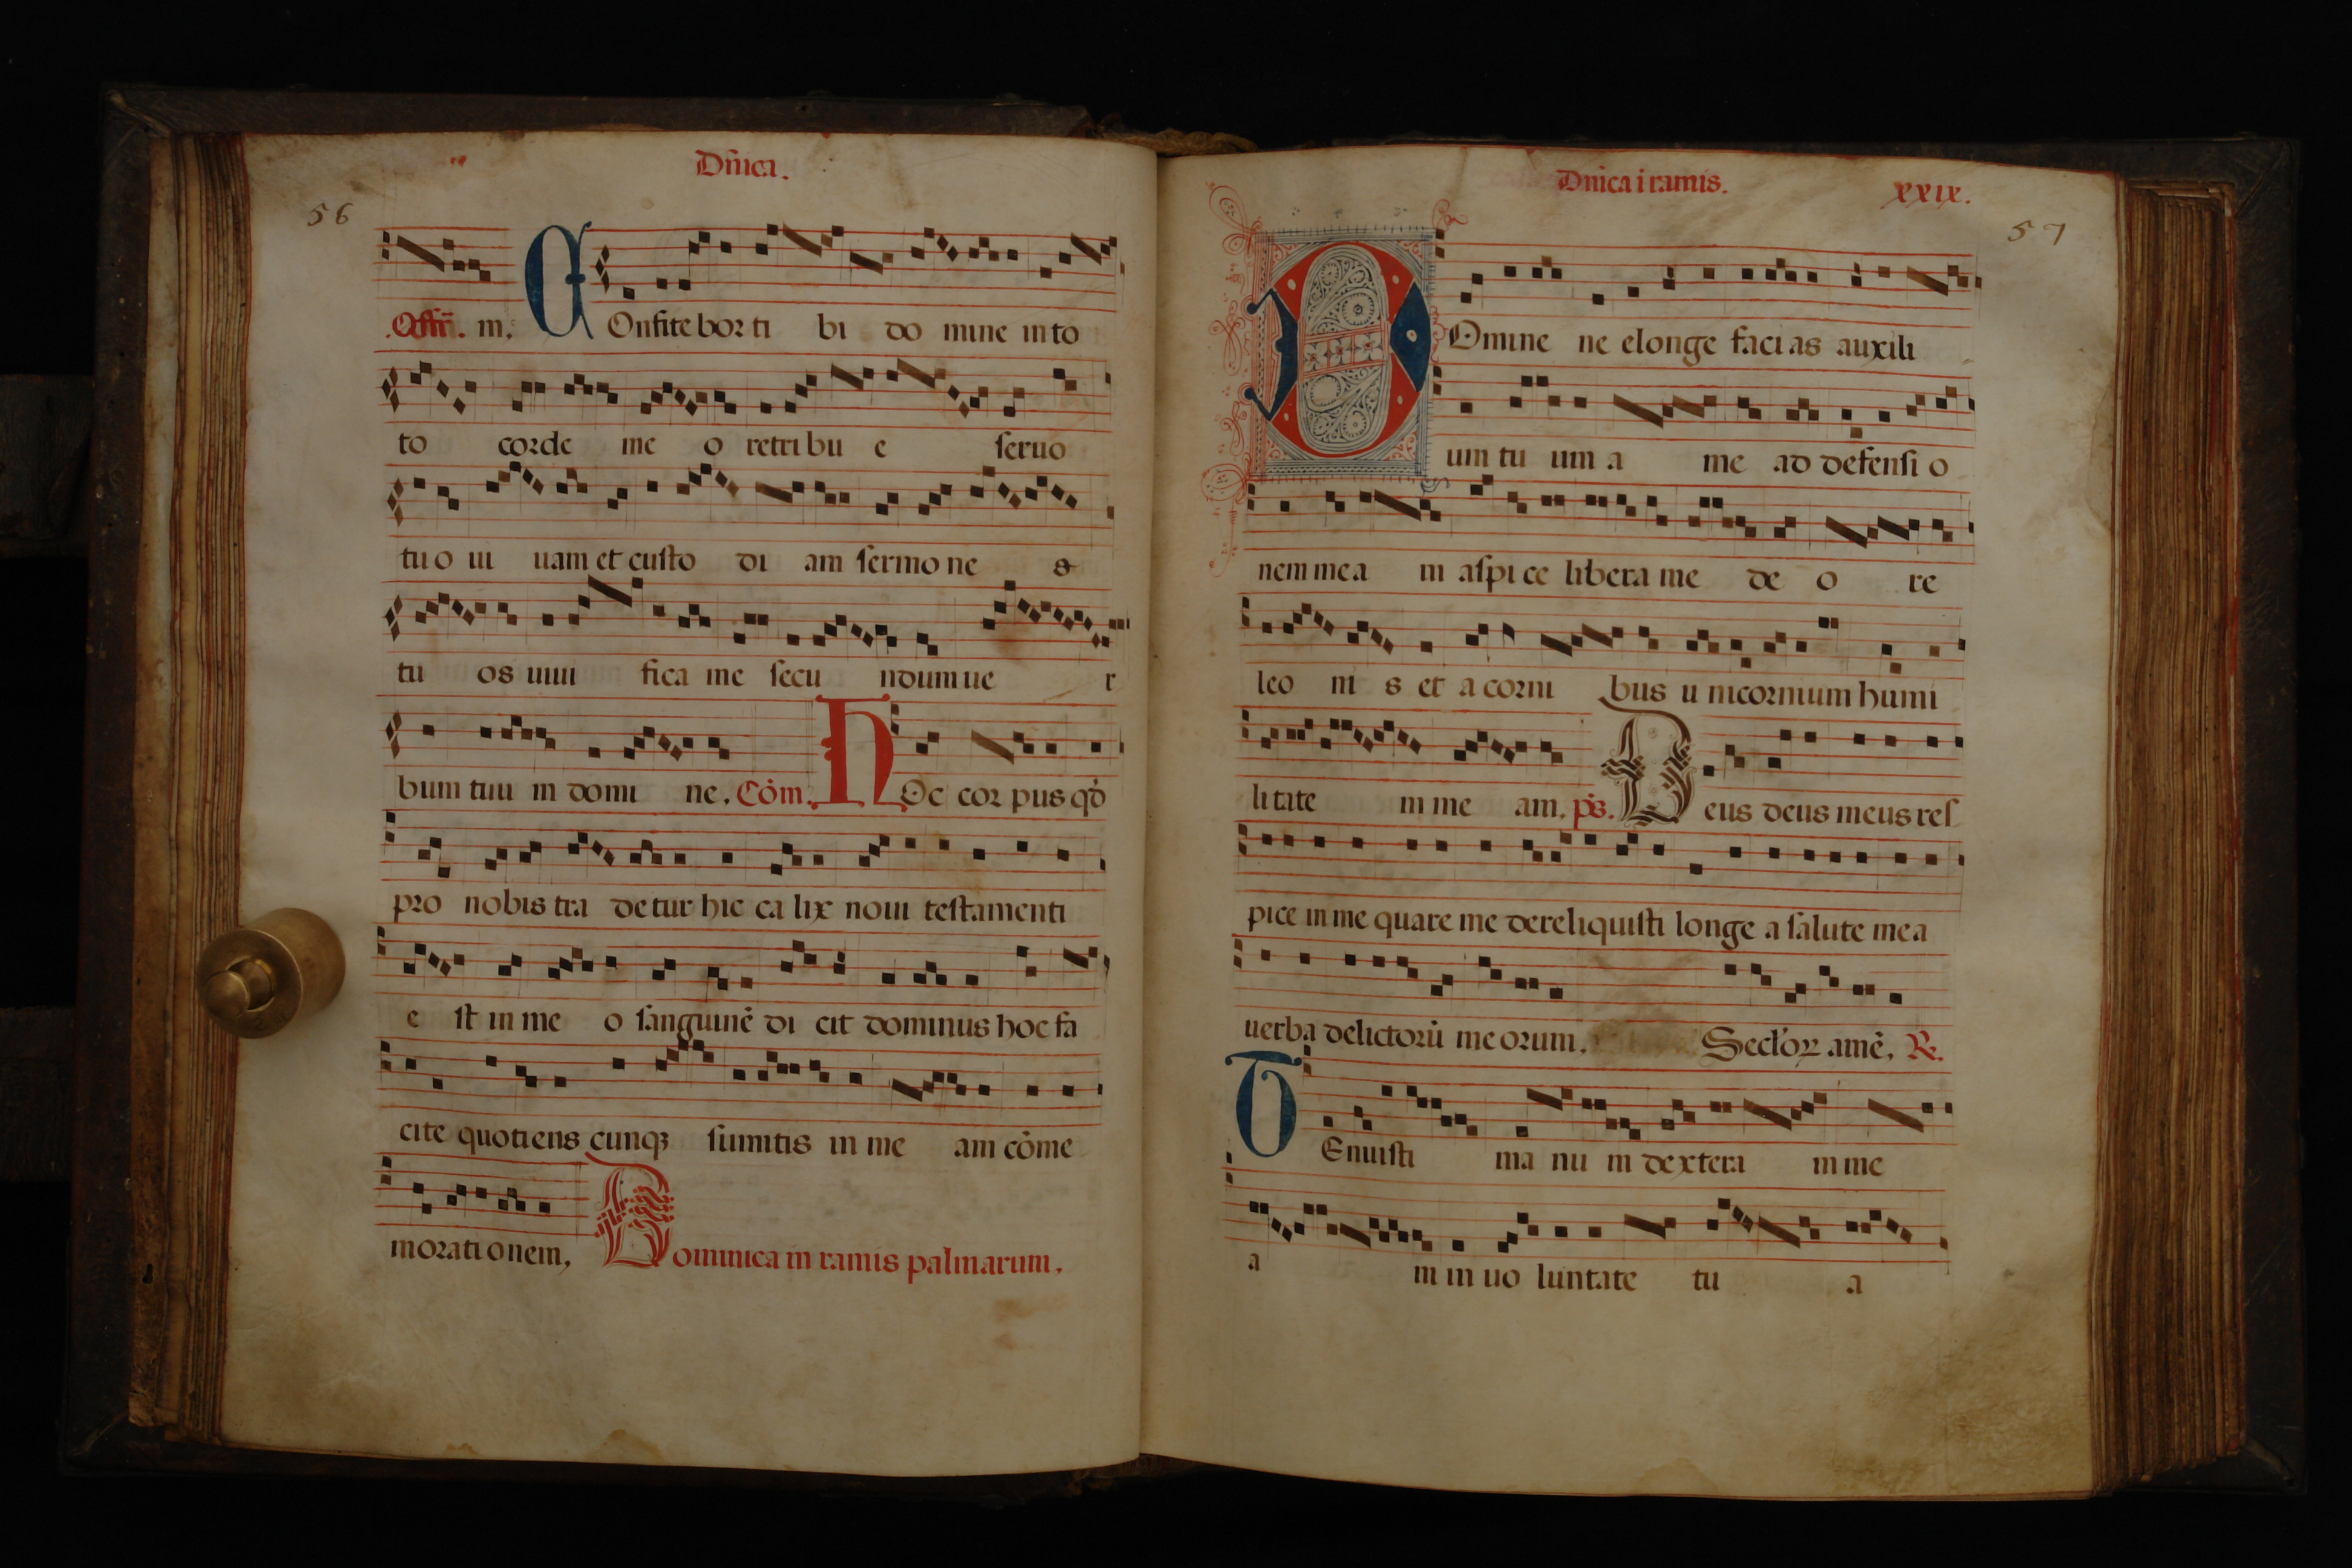 Dñica.
56
.Offr̄. m. COnfitebor ti bi do mine in to
to corde me o retribu e seruo
tuo ui uam et custo di am sermo ne s
tu os uiui fica me secu ndum ue r
bum tuu m domi ne. Cōm. HOc cor pus qd̄
pro nobis tra detur hic ca lix noui testamenti
e st in me o sanguinē di cit dominus hoc fa
cite quotiens cunqꝫ sumitis in me am cōme
morati onem, Dominica in ramis palmarum.
Dnica i ramis. xxix.
57
DOmine ne elonge facias auxili
um tu um a me ad defensi o
nem mea m aspice libera me de o re
leo ni s et a corni bus u nicornium humi
litate m me am. ps. Deus deus meus res
pice in me quare me dereliquisti longe a salute mea
uerba delictorū meorum. Seclorꝝ amē. R.
TEnuisti ma nu m dextera m me
a m in uo luntate tu a